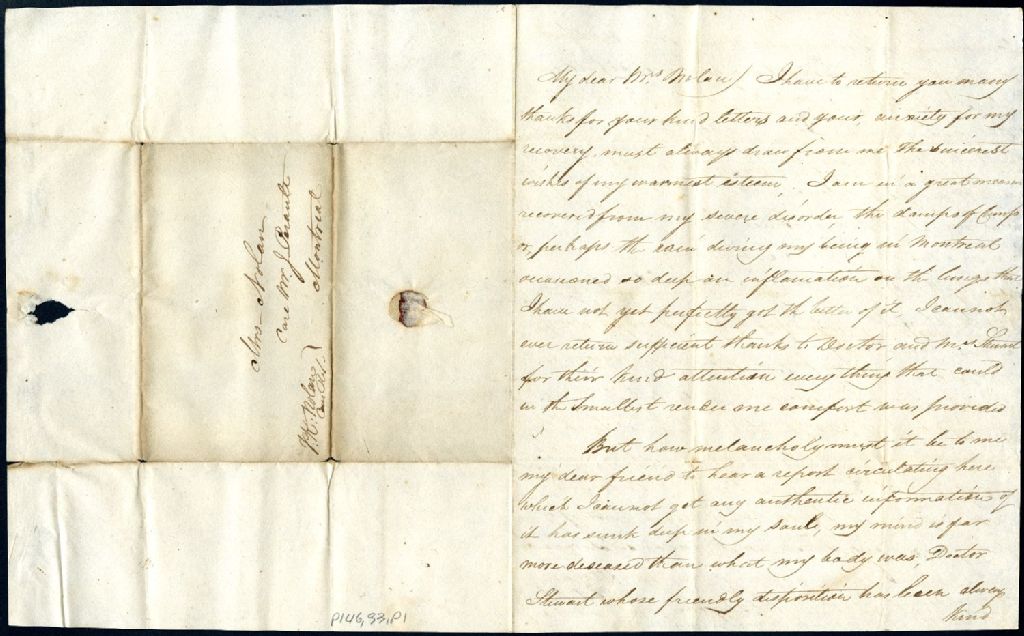 Mrs Nolan
Care Mr J. Perault
Montreal
My dear Mrs Nolan) I have to return you many
thanks for your kind letters and your, anxiety for my
recovery, must always draw from me the sincerest
wishes of my warmest esteem, I am in a great measure
recovered from my severe disorder the damps of
or, perhaps the rain during my being in Montreal
occasioned so deep an inflamation on the lungs that
I have not yet perfectly got the better of it, I cannot
ever return sufficient thanks to Doctor and Mrs Stewart
for their kind attention everything that could
in the smallest render me comfort was provided
But how melancholy must it be to me
my dear friend to hear a report circulating here
which I cannot get any authentic information of
it has sunk deep in my soul, my mind is far
more deseased than what my body was, Doctor
Stewart whose friendly disposition has been always
kind
P146,93,P1